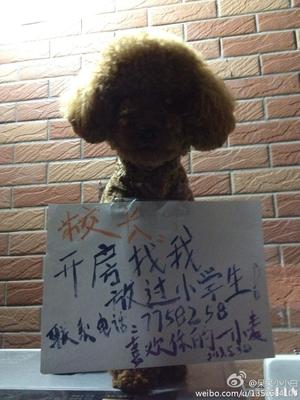 校长
开房找我
放过小学生
联系电话:7758258
喜欢你的一小麦
2013.5.30
weibo.com/u/135